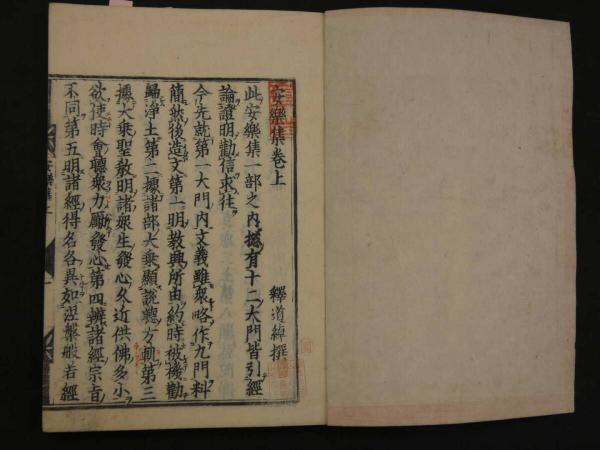 安樂集卷上
釋道綽撰
此安樂集一部之內揔有十二大門皆引經
論證明勸信求徃
今先就第一大門內文義雖衆略作九門料
簡然後造文第一明教興所由約時被機勸
歸淨土第二據諸部大乘顯說聽方軌第三
據大乘聖教明諸衆生發心久近供佛多小
欲使時會聽衆力勵發心第四辨諸經宗旨
不同第五明諸經得名各異如涅槃般若經
安樂集上